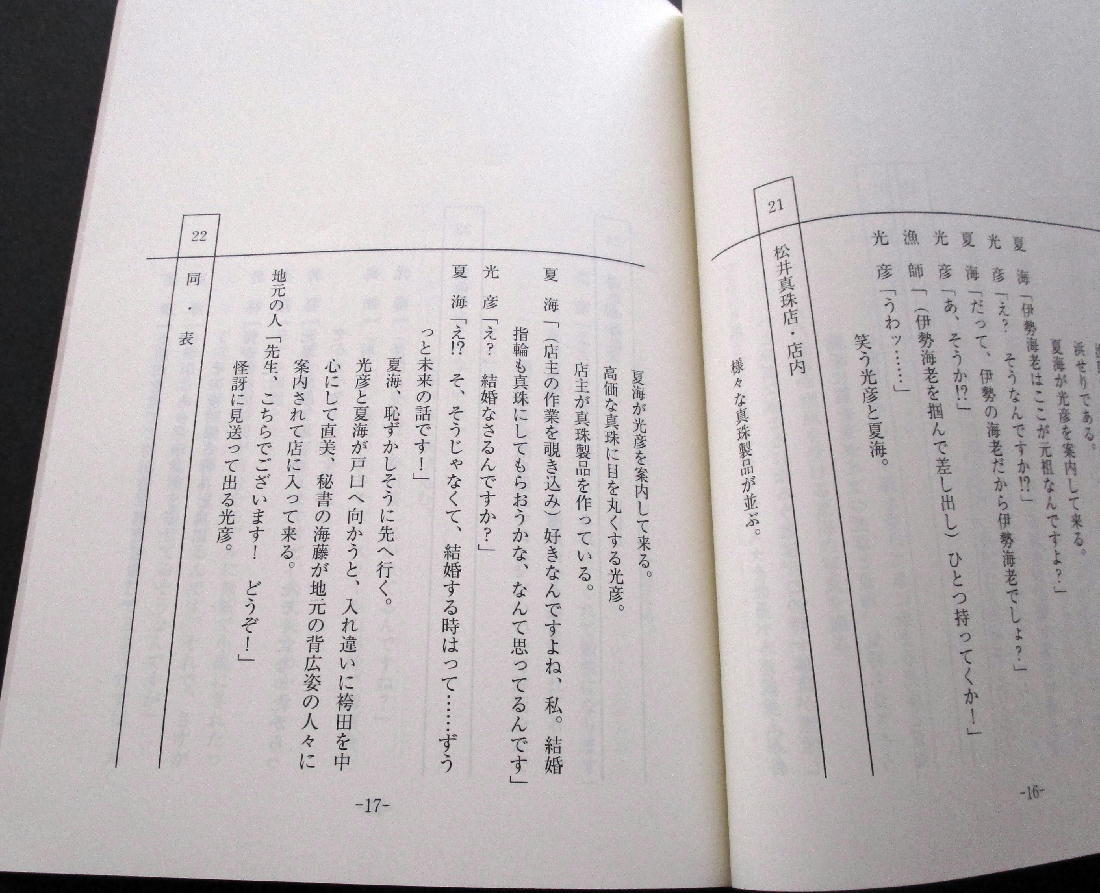 浜せりである。
夏海が光彦を案内して来る。
夏　海「伊勢海老はここが元祖なんですよ？」
光　彦「え？　そうなんですか!?」
夏　海「だって、伊勢の海老だから伊勢海老でしょ？」
光　彦「あ、そうか!?」
漁　師「（伊勢海老を掴んで差し出し）ひとつ持ってくか！」
光　彦「うわッ……」
笑う光彦と夏海。
21 松井真珠店・店内
様々な真珠製品が並ぶ。
-16-
夏海が光彦を案内して来る。
高価な真珠に目を丸くする光彦。
店主が真珠製品を作っている。
夏　海「（店主の作業を覗き込み）好きなんですよね、私。結婚
指輪も真珠にしてもらおうかな、なんて思ってるんです」
光　彦「え？　結婚なさるんですか？」
夏　海「え!?　そ、そうじゃなくて、結婚する時はって……ずう
っと未来の話です！」
夏海、恥ずかしそうに先へ行く。
光彦と夏海が戸口へ向かうと、入れ違いに袴田を中
心にして直美、秘書の海藤が地元の背広姿の人々に
案内されて店に入って来る。
地元の人「先生、こちらでございます！　どうぞ！」
怪訝に見送って出る光彦。
22 同・表
-17-